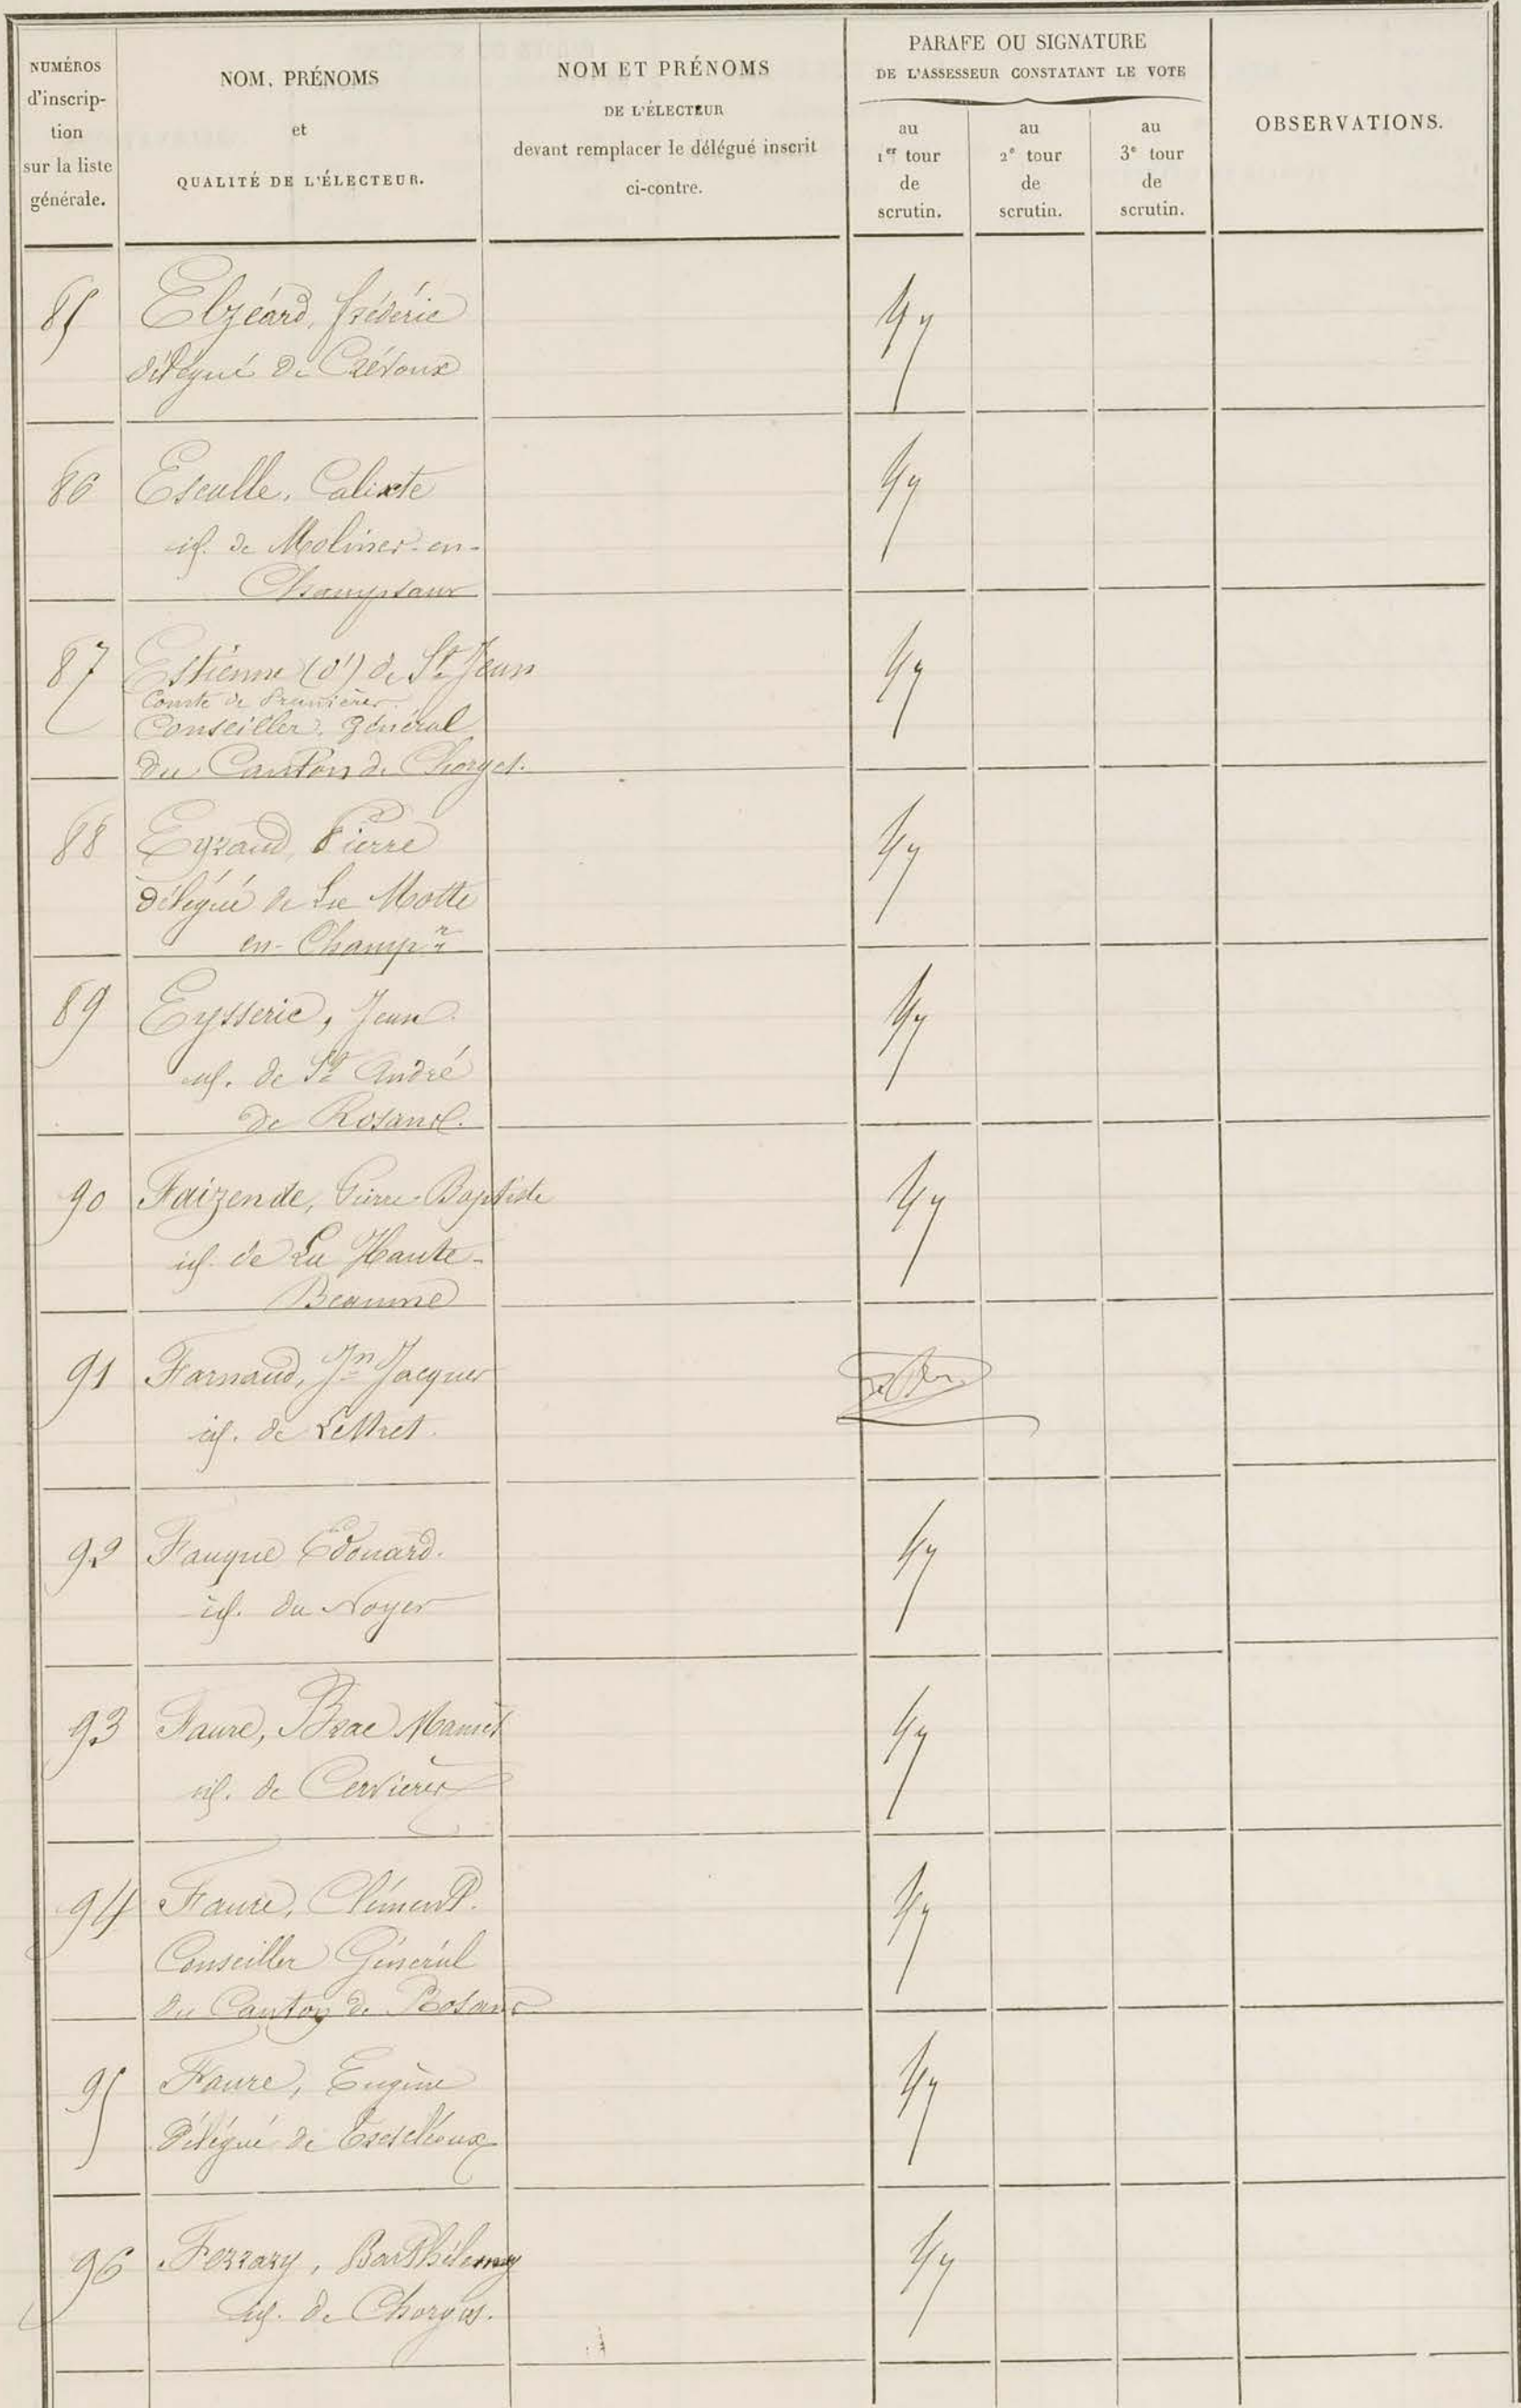 NUMÉROS
d'inscrip-
tion
sur la liste
générale.
NOM, PRÉNOMS
et
QUALITÉ DE L'ÉLECTEUR.
NOM ET PRÉNOMS
DE L'ÉLECTEUR
devant remplacer le délégué inscrit
ci-contre.
PARAFE OU SIGNATURE
DE L'ASSESSEUR CONSTATANT LE VOTE
au
1er tour
de
scrutin.
au
2e tour
de
scrutin.
au
3e tour
de
scrutin.
OBSERVATIONS.
85 Elzéard, frédéric
délégué de Crévoux
86 Escalle, Calixte
id. de Molines-en-
Champsaur
87 Estienne (d') de St Jean
Comte de Prunières
Conseiller général
du Canton de Chorges.
88 Eyraud, Pierre
délégué de La Motte
en-Champr
89 Eysseric, Jean
id. de St André
de Rosans.
90 Faizende, Pierre-Baptiste
id. de La Haute-
Beaume
91 Farnaud, Jn Jacques
id. de Lettret.
92 Fauque Edouard.
id. du Noyer
93 Faure, Brac
id. de Cervières
94 Faure, Clément.
Conseiller Général
du Canton de Rosans
95 Faure, Eugène
Délégué de Trescléoux
96 Ferrary, Barthélemy
id. de Chorges.